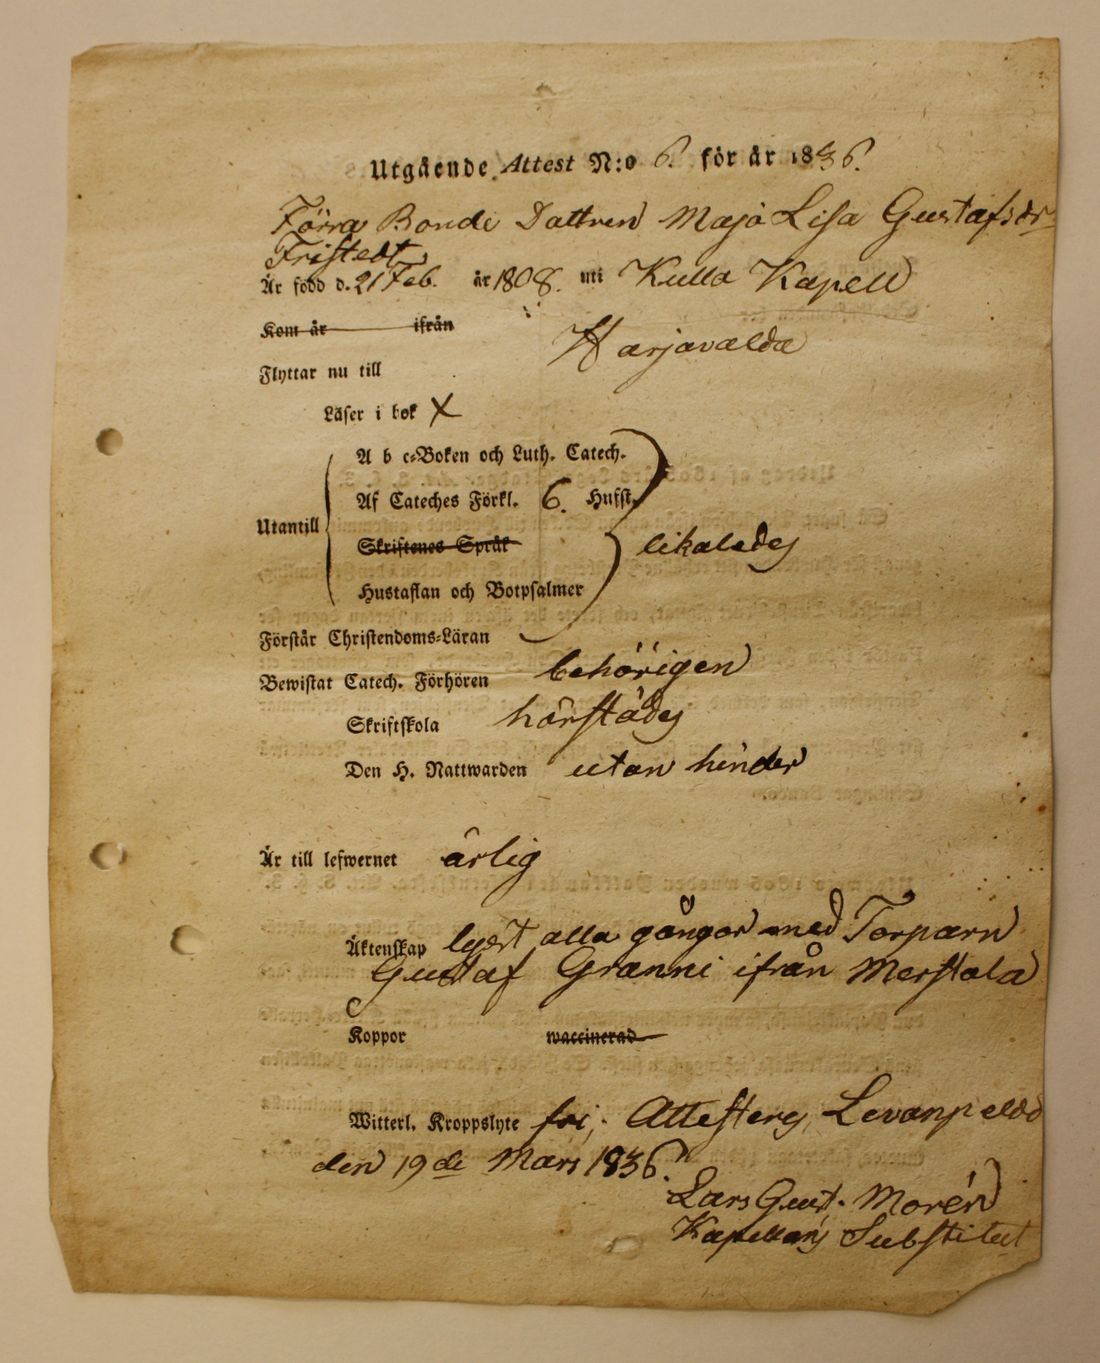 Utgående Attest N:o 6. för år 1836.
Förra Bonde Dottren Maja Lisa Gustafsdr
Fristedt
Är född d. 21 Feb. år 1808. uti Kulla Kapell
Kom år ifrån
Harjavalda
Flyttar nu till
Läser i bok X
A b c-Boken och Luth. Catech.
Af Cateches Förkl. 6. Hufst.
Utantill
Skriftenes Språk likaledes
Hustaflan och Botpsalmer
Förstår Christendoms-Läran
Bewistat Catech. Förhören behörigen
Skriftskola härstädes
Den H. Nattwarden utan hinder
Är till lefwernet ärlig
Äktenskap lyst alla gångor med Torparn
Gustaf Granni ifrån Merstola
Koppor waccinerad
Witterl. Kroppslyte fri; Attesterg
den 19de Mars 1836.
Lars Gust. Morén
Kapellans Substitut